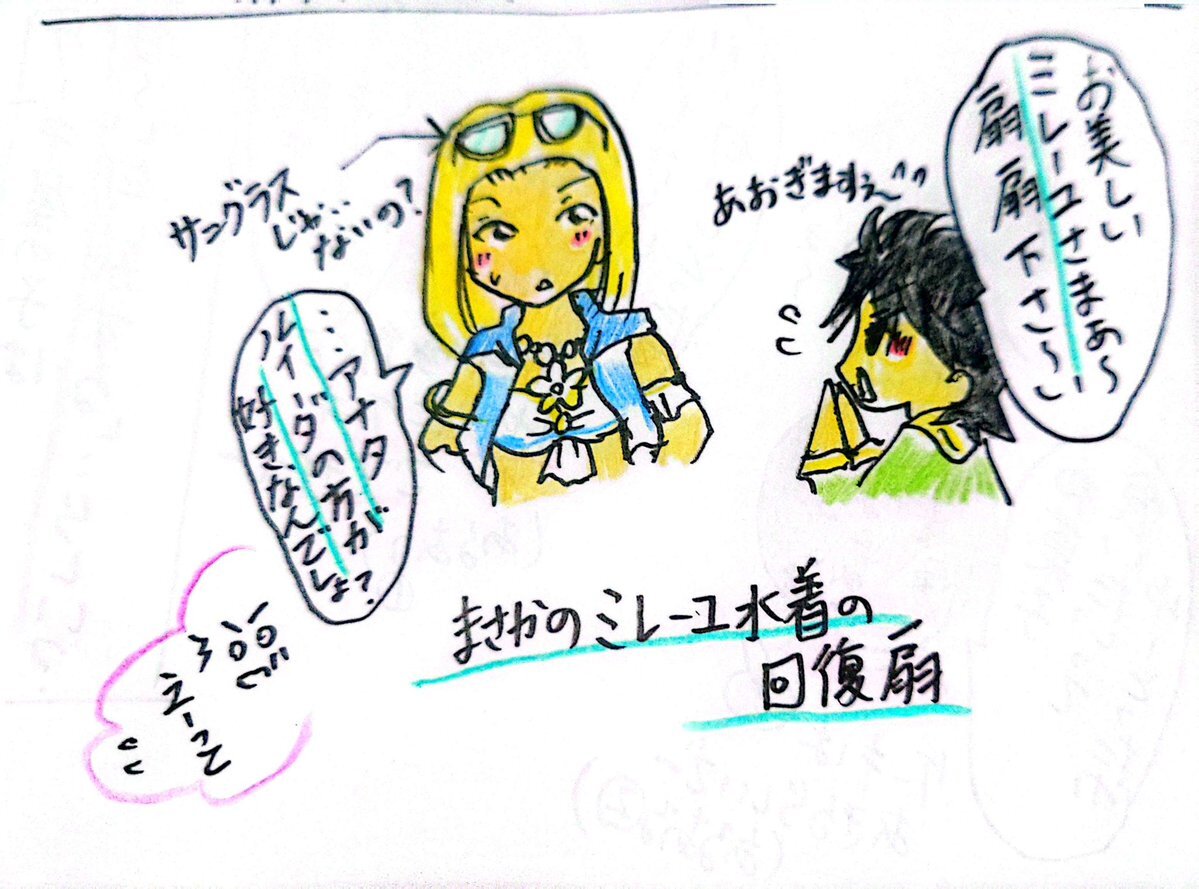 お美しい
ミレーユさまぁ〜
扇扇下さ〜い
あおぎますぅ〜
サングラス
じゃ…
ないの?
…アナタ
ルイーダの方が
好きなんでしょ?
えーって
まさかのミレーユ水着の
回復扇